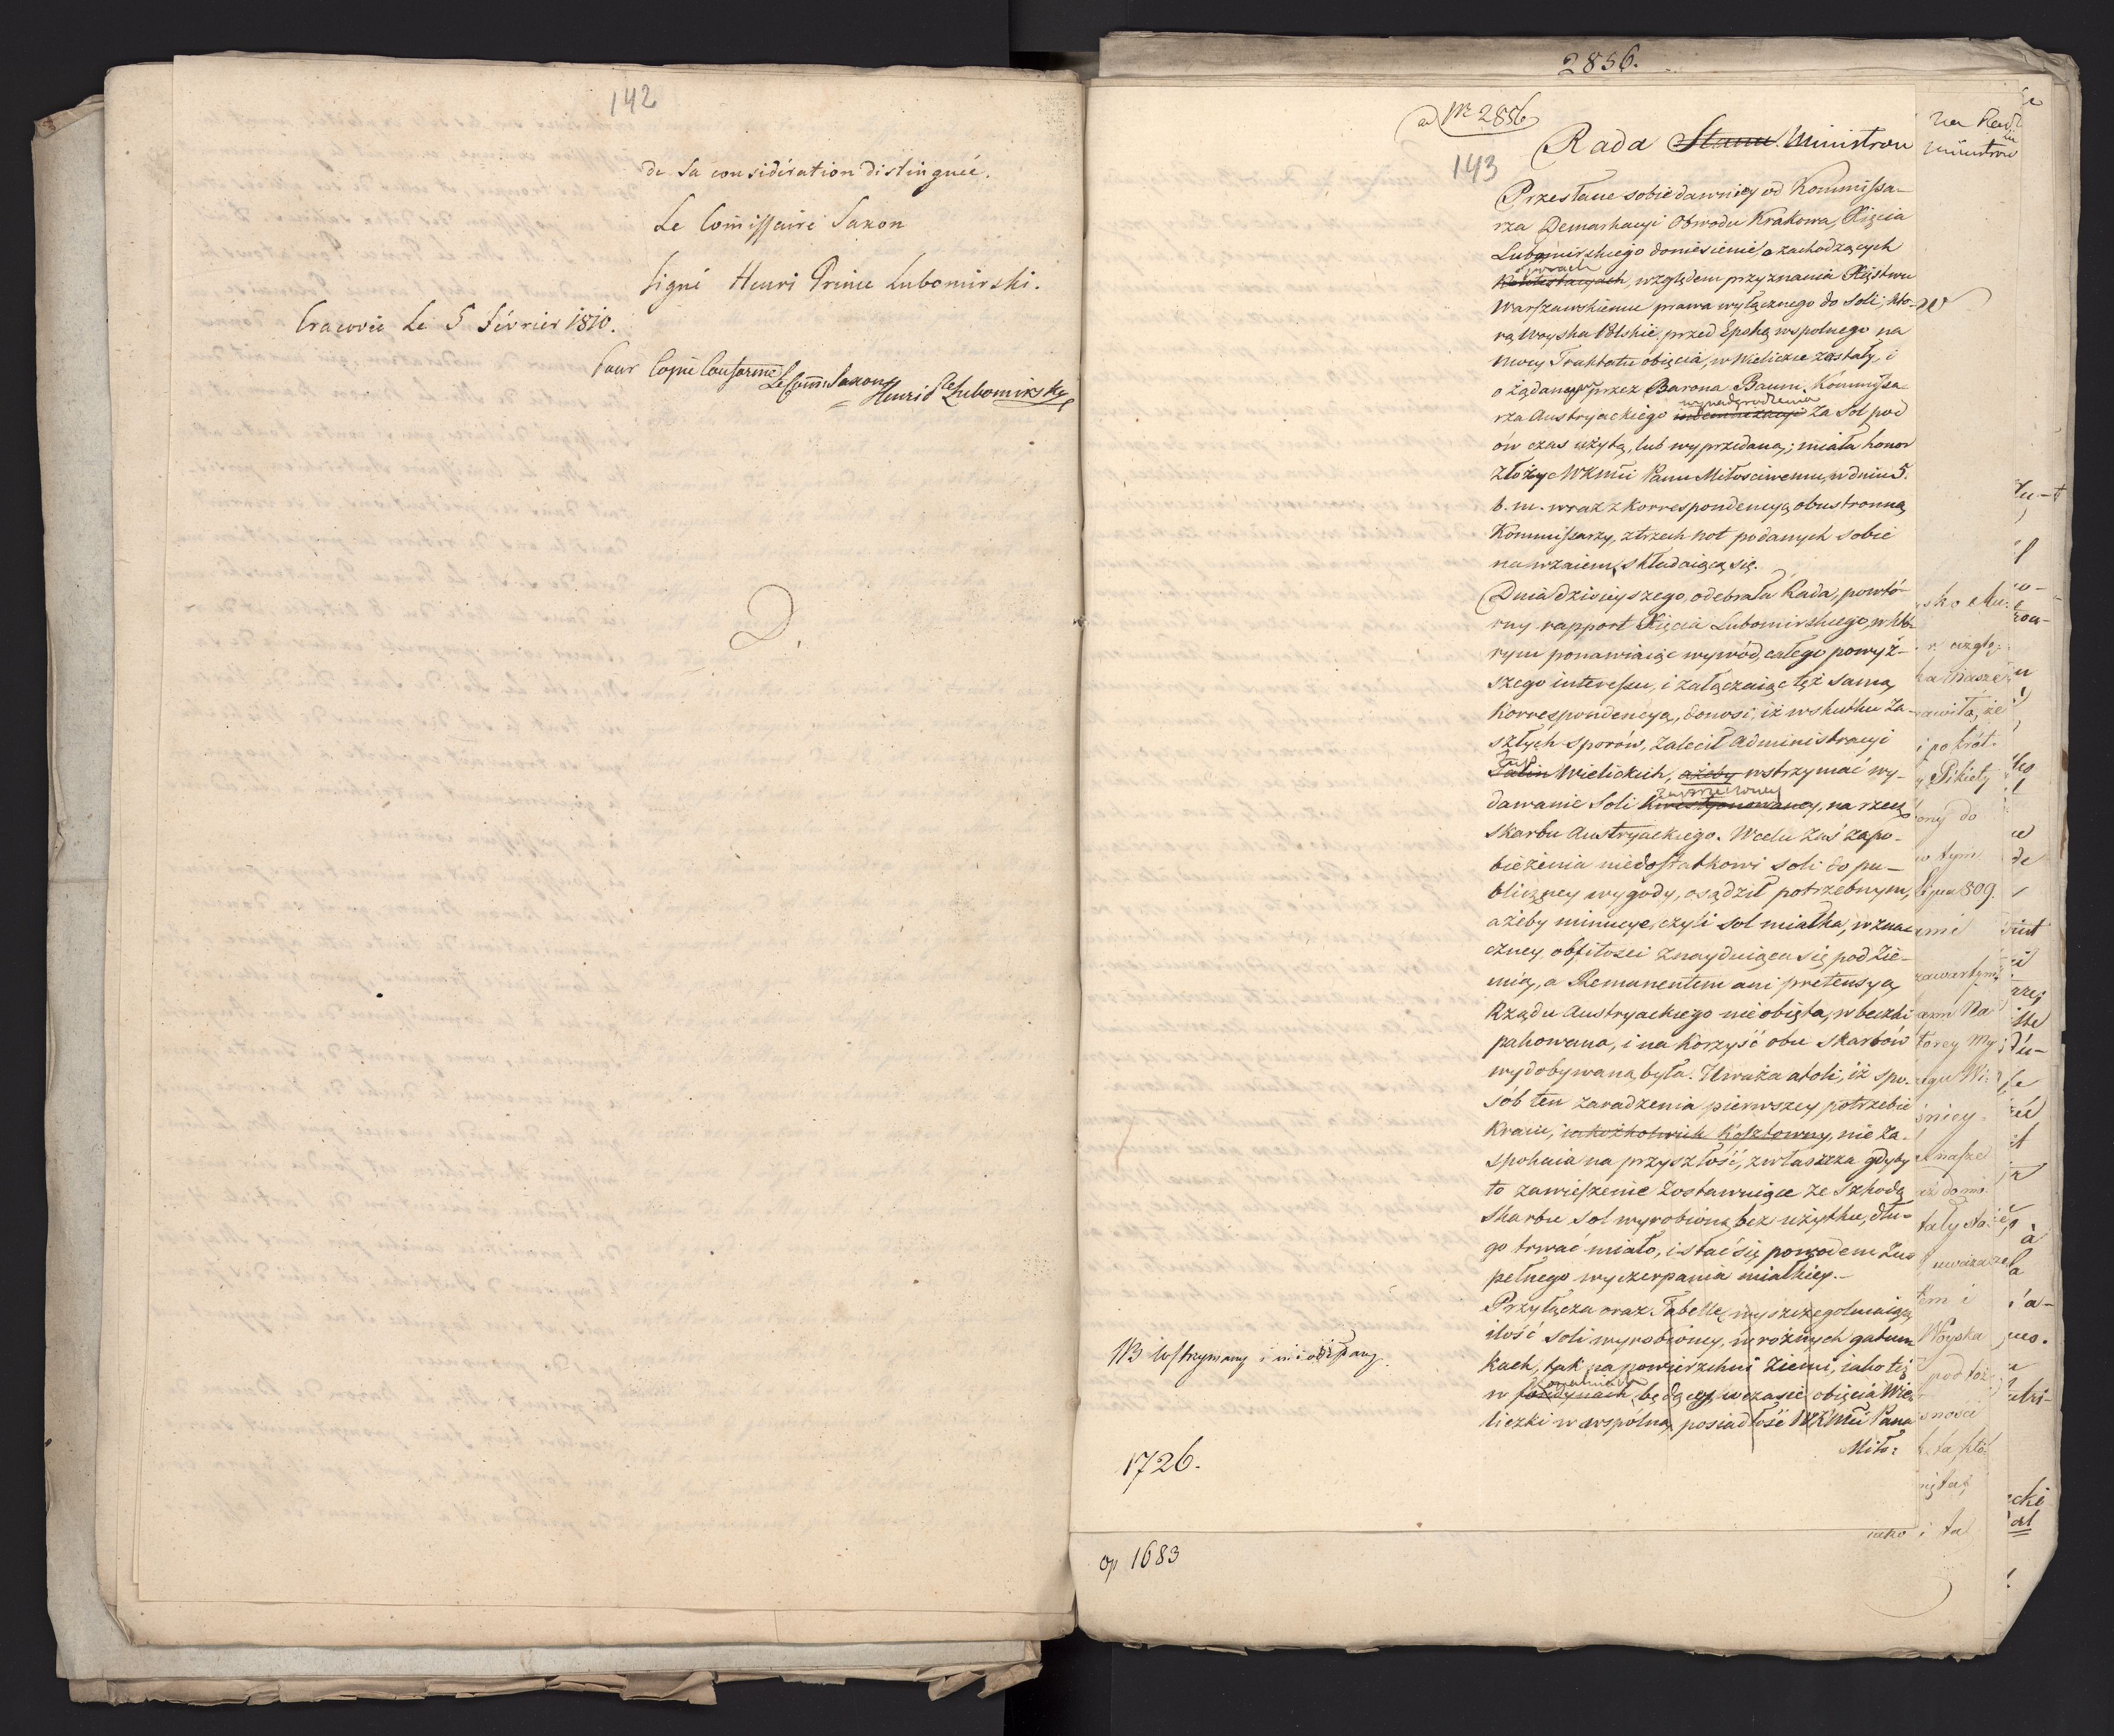 142
de sa considération distinguée.
Le Comissaire Saxon
signé Henri Prince Lubomirski.
Cracovie Le 5 Février 1810.
Pour Copie Conforme Le Comre Saxon
Henri Pce Lubomirsky
D.
2856.
ad Nr 2856
143
Rada Stanu Ministrow
Przesłane sobie dawniey od Kommissa-
rza Demarkacyi Obwodu Krakowa, Xięcia
Lubomirskiego doniesienie o zachodzących
sporach
Kontestacyach, względem przyznania Xięstwu
Warszawskiemu prawa wyłącznego do soli, któ-
rą Woyska Polskie, przed Epoką wspolnego na
mocy Traktatu obięcia, w Wieliczce zastały, i
o żądaney przez Barona Baum, Kommissa-
wynadgrodzenia
rza Austryackiego indemnizacyi za sol pod
ów czas użytą, lub wyprzedaną; miała honor
złożyc WKMci Panu Miłosciwemu, w dniu 5.
b. m. wraz z korrespondencyą obustronną
Kommissarzy, z trzech not podanych sobie
nawzaiem, składaiącą się.
Dnia dzisieyszego, odebrała Rada, powtó-
rny rapport Xięcia Lubomirskiego, w któ-
rym ponawiaiąc wywód całego powyż-
szego interessu, i załączaiąc też samą
Korrespondencyą, donosi, iż wskutku za-
szłych sporów, zalecił Administracyi
Żup
Salin Wielickich, ażeby wstrzymać wy-
zaprzeczoney
dawanie Soli kwestyonowaney, na rzecz
skarbu Austryackiego. W celu zaś zapo-
bieżenia niedostatkowi soli do pu-
bliczney wygody, osądził potrzebnym,
ażeby minucye, czyli sol miałka, w zna-
czney obfitosci znayduiąca się pod zie-
mią, a Remanentem ani pretensyą
Rządu Austryackiego nie obięta, w beczki
pakowana, i na korzyść obu skarbów
wydobywaną była. Uważa atoli, iż spo-
sób ten zaradzenia pierwszey potrzebie
kraiu, iakożkolwiek kosztowny, nie za-
spokaia na przyszłość, zwłaszcza gdyby
to zawieszenie zostawuiące ze szkodą
skarbu sol wyrobioną bez użytku, dłu-
go trwać miało, i stać się powodem zu-
pełnego wyczerpania miałkiey.-
Przyłącza oraz Tabellę wyszczegolniaiącą
ilość soli wyrobioney, w rożnych gatun-
kach, tak na powierzchni ziemi, iako też
w będącey w czasie obięcia Wie-
liczki w wspólną posiadłość WKMci Pana
Miło:
NB wstrzymany i nie
1726.
op 1683
na Radę
Ministrow
Pikiety
ony do
w tym
lipca 809.
zawartym
Woyska
iako i ta